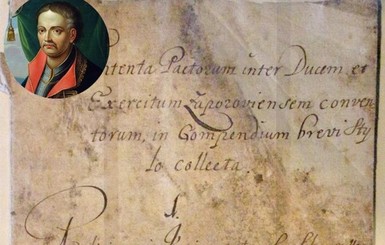 ntenta Pactorum inter Ducem et
Exercitum Zaporoviensem conven
torum, in Compendium brevi Sty
lo collecta.
1.